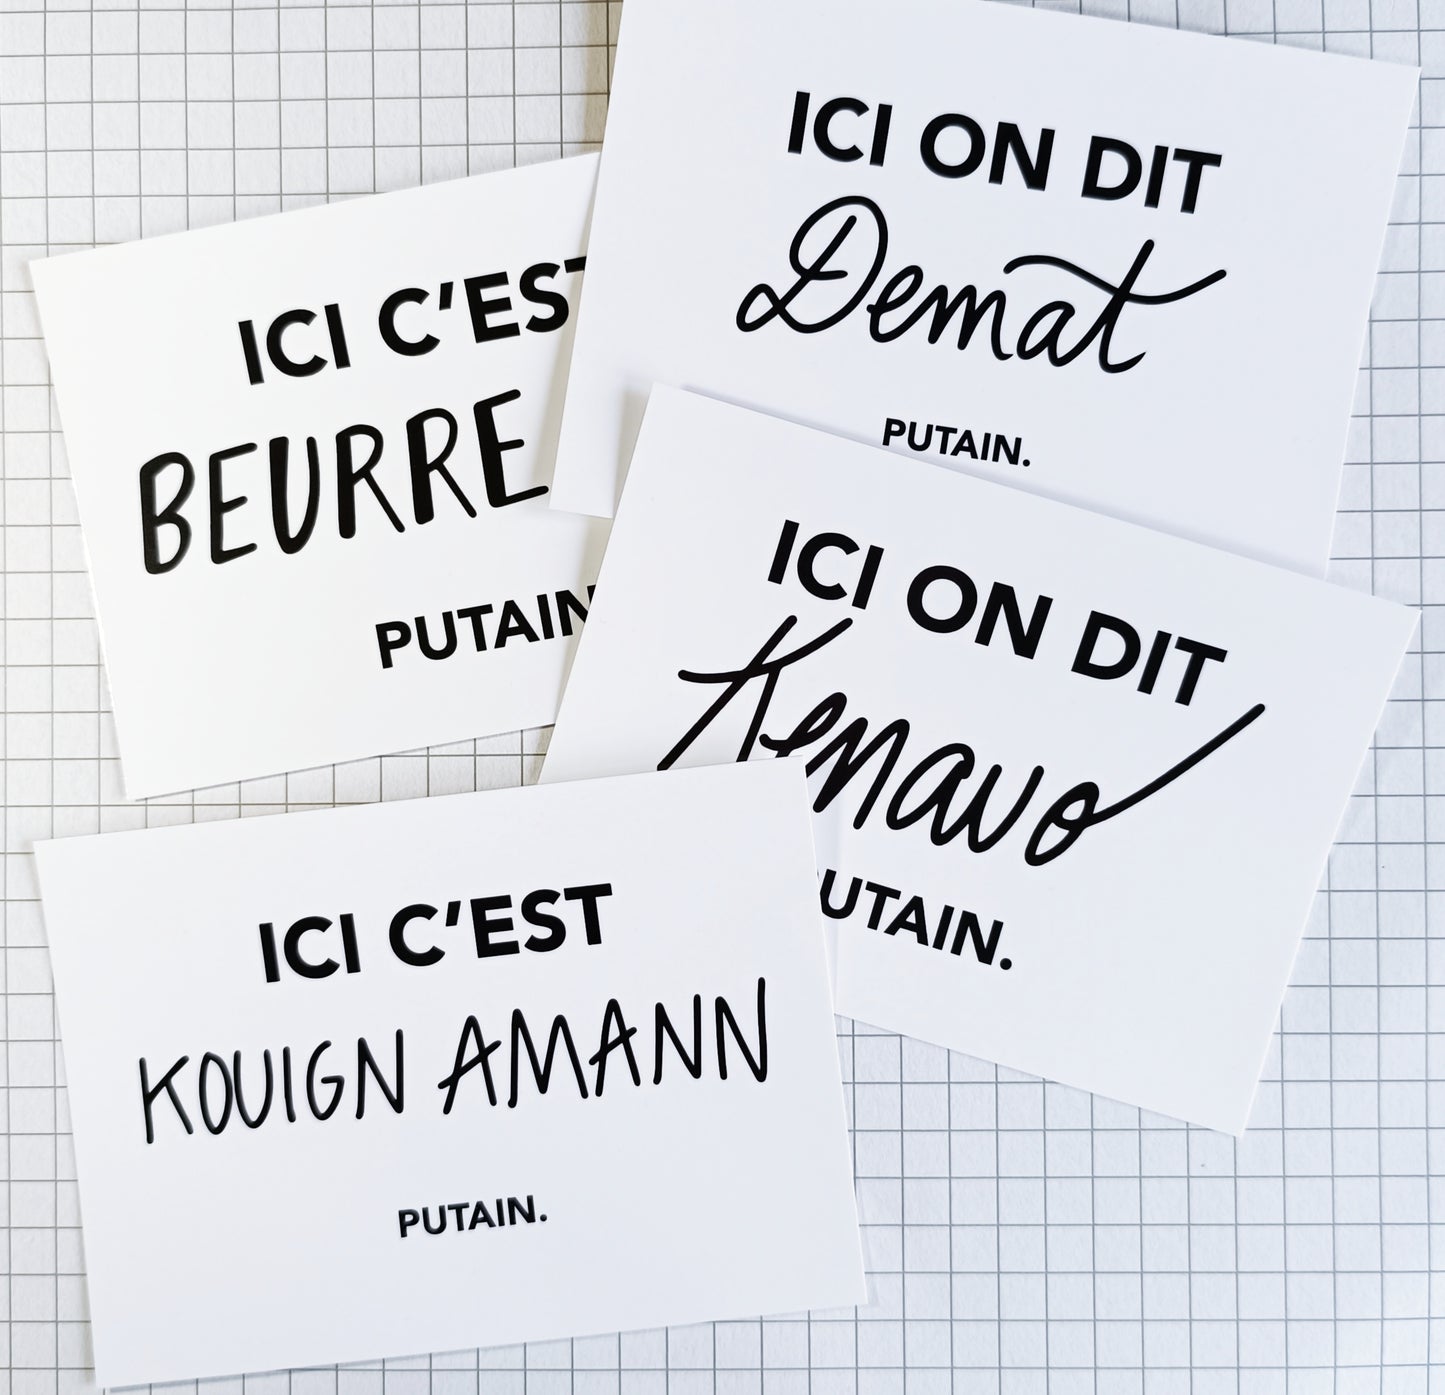 ICI ON DIT
Demat
PUTAIN.
ICI C'EST
BEURRE
PUTAIN
ICI ON DIT
Kenavo
UTAIN.
ICI C'EST
KOUIGN AMANN
PUTAIN.